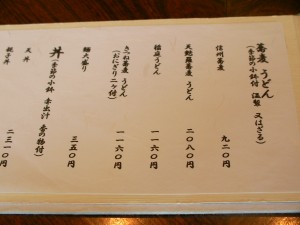 蕎麦 うどん
(季節の小鉢付 温製 又はざる)
信州蕎麦 九二〇円
天麩羅蕎麦 うどん 二〇八〇円
稲庭うどん 一一六〇円
きつね蕎麦 うどん 一一六〇円
(おにぎり二ケ付)
麺大盛り 三五〇円
丼(季節の小鉢 赤出汁 香の物付)
天丼 二三一〇円